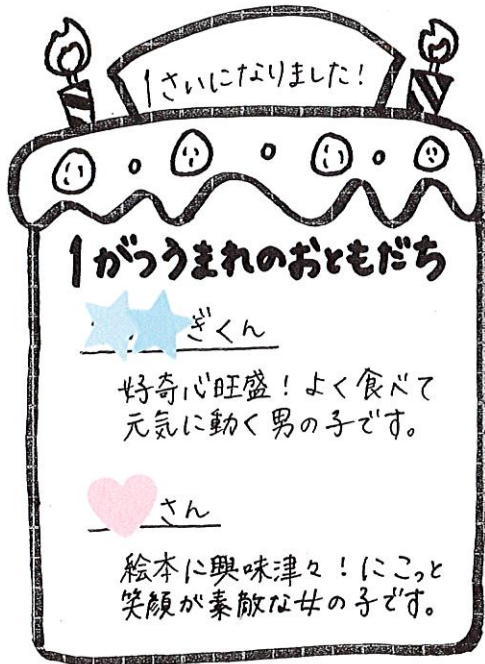 1さいになりました!
1がつうまれのおともだち
ぎくん
好奇心旺盛!よく食べて
元気に動く男の子です。
さん
絵本に興味津々!にこっと
笑顔が素敵な女の子です。